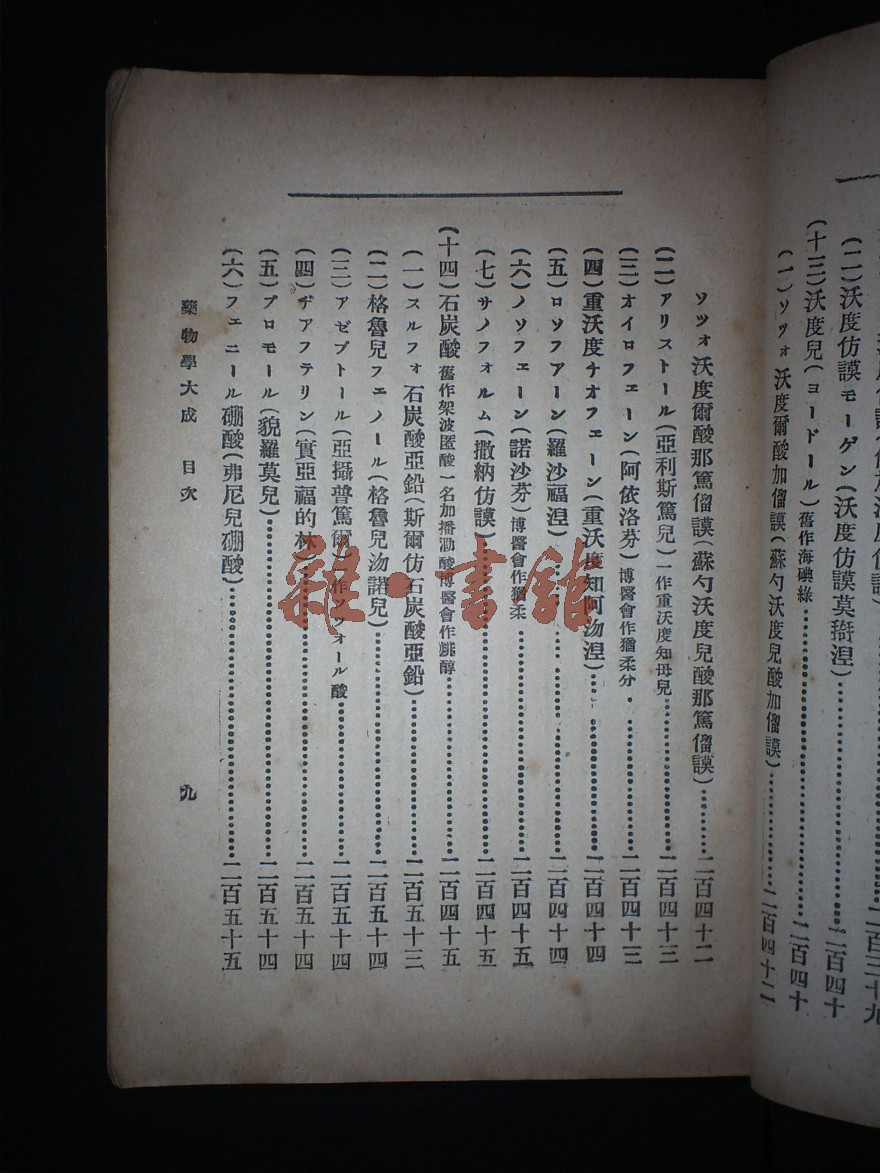 (二)沃度仿謨モーゲン(沃度仿謨莫搿涅)……二百四十
(十三)沃度兒(ヨードール)舊作海碘綠……二百四十
(一)ソツォ沃度爾酸加僱謨(蘇勺沃度兒酸加僱謨)……二百四十二
ソツォ沃度爾酸那篤僱謨(蘇勺沃度兒酸那篤僱謨)……二百四十二
(二)アリストール(亞利斯篤兒)一作重沃度知母兒……二百四十三
(三)オイロフェーン(阿依洛芬)博醫會作猶柔分……二百四十三
(四)重沃度チオフェーン(重沃度知阿沕涅)……二百四十四
(五)ロソフアーン(羅沙福涅)……二百四十四
(六)ノソフェーン(諾沙芬)博醫會作猶柔……二百四十五
(七)サノフォルム(撒納仿謨)……二百四十五
(十四)石炭酸舊作架波匿酸一名加播泐酸博醫會作烑醇……二百四十五
(一)スルフォ石炭酸亞鉛(斯爾仿石炭酸亞鉛)……二百五十三
(二)格魯兒フェノール(格魯兒沕諾兒)……二百五十四
(三)アゼプトール(亞攝普篤爾)一作ソツォール酸……二百五十四
(四)ヂアフテリン(實亞福的林)……二百五十四
(五)プロモール(貌羅莫兒)……二百五十四
(六)フェニール硼酸(弗尼兒硼酸)……二百五十五
藥物學大成 目次 九
雜·書館